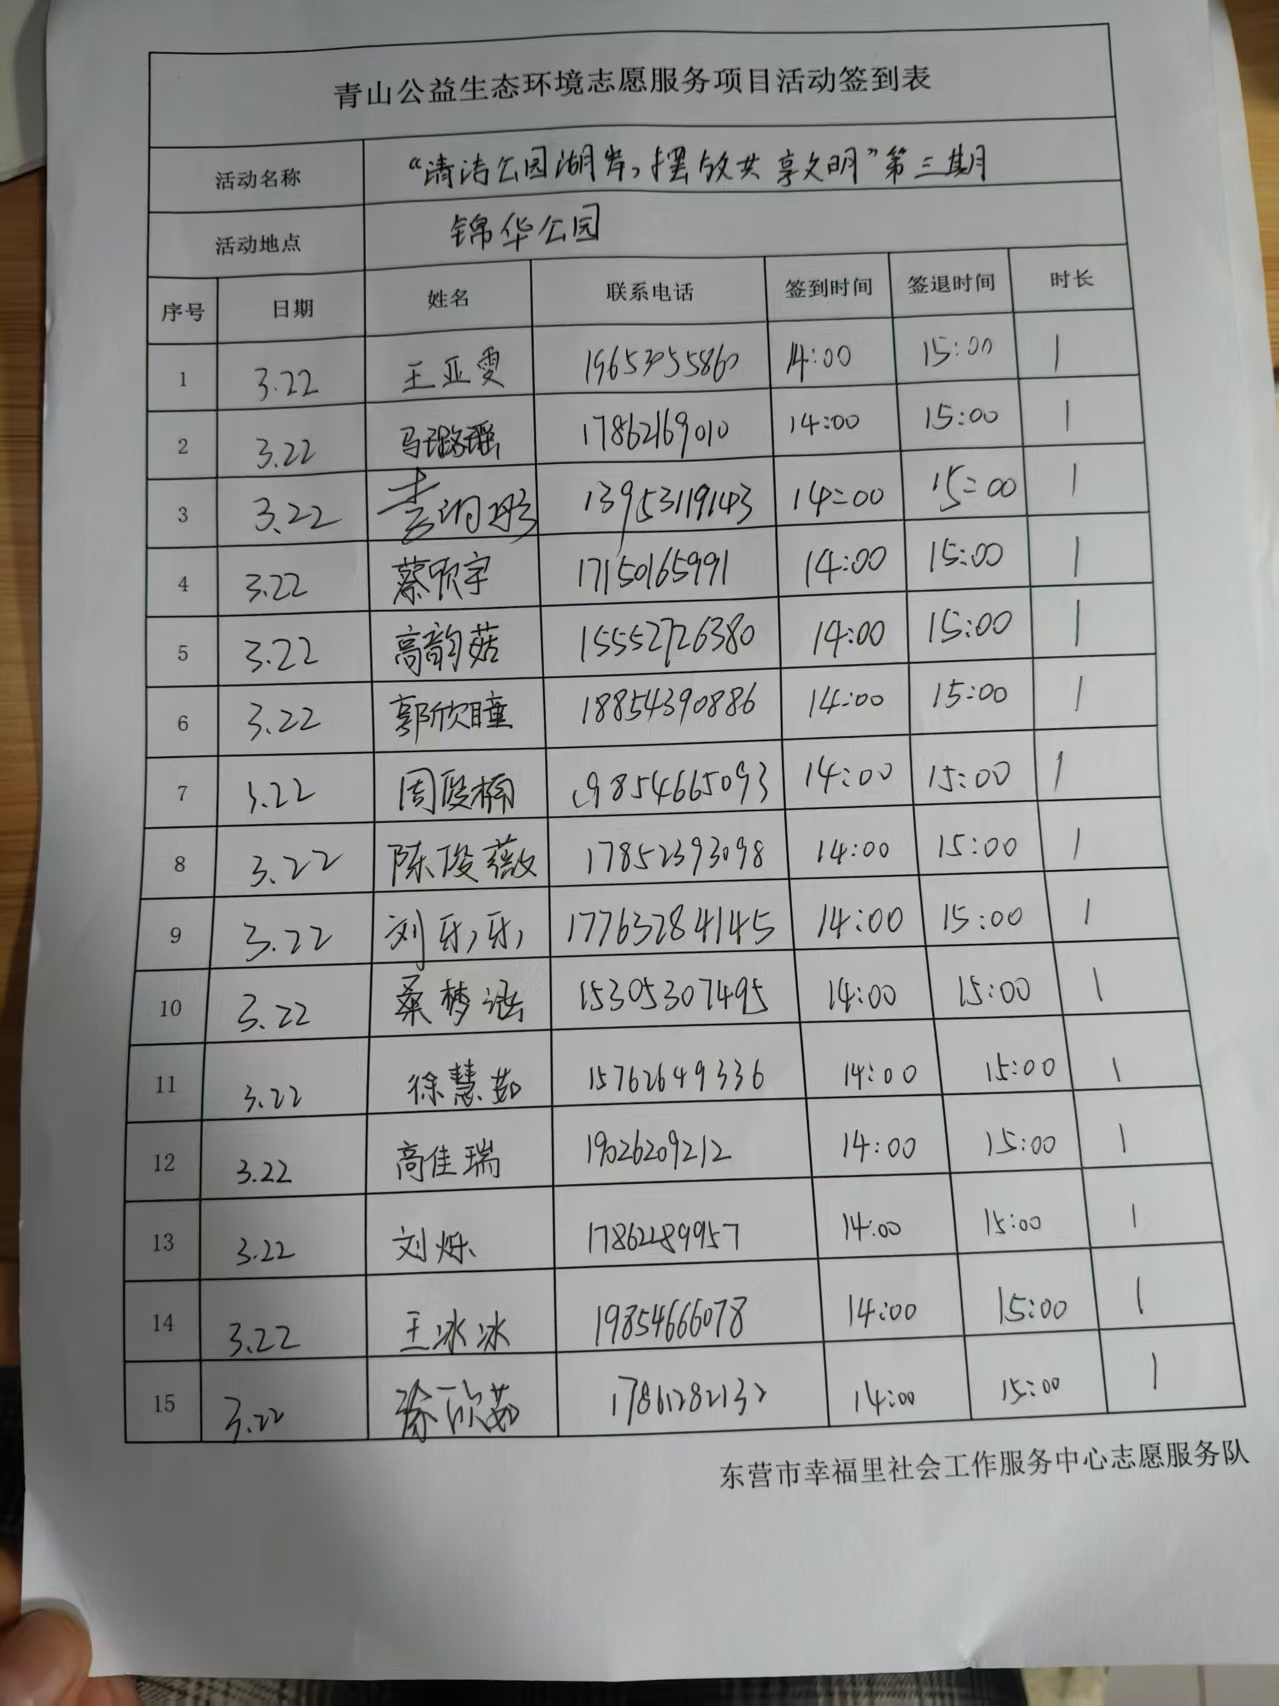 青山公益生态环境志愿服务项目活动签到表
活动名称 “清洁公园湖岸，摆放共享文明”第三期
活动地点 锦华公园
序号 日期 姓名 联系电话 签到时间 签退时间 时长
1 3.22 王亚雯 14:00 15:00 1
2 3.22 马璐瑶 17862169010 14:00 15:00 1
3 3.22 13953119143 14:00 15:00 1
4 3.22 蔡欣宇 17150165991 14:00 15:00 1
5 3.22 高韵菇 15552726380 14:00 15:00 1
6 3.22 郭欣瞳 18854390886 14:00 15:00 1
7 3.22 周俊楠 19854665093 14:00 15:00 1
8 3.22 陈俊薇 17852393098 14:00 15:00 1
9 3.22 刘牙牙 17763284145 14:00 15:00 1
10 3.22 桑梦涵 15305307495 14:00 15:00 1
11 3.22 徐慧茹 15762649336 14:00 15:00 1
12 3.22 高佳瑞 19026209212 14:00 15:00 1
13 3.22 刘烁 17862289957 14:00 15:00 1
14 3.22 王冰冰 19854666078 14:00 15:00 1
15 3.22 徐欣茹 17861282132 14:00 15:00 1
东营市幸福里社会工作服务中心志愿服务队